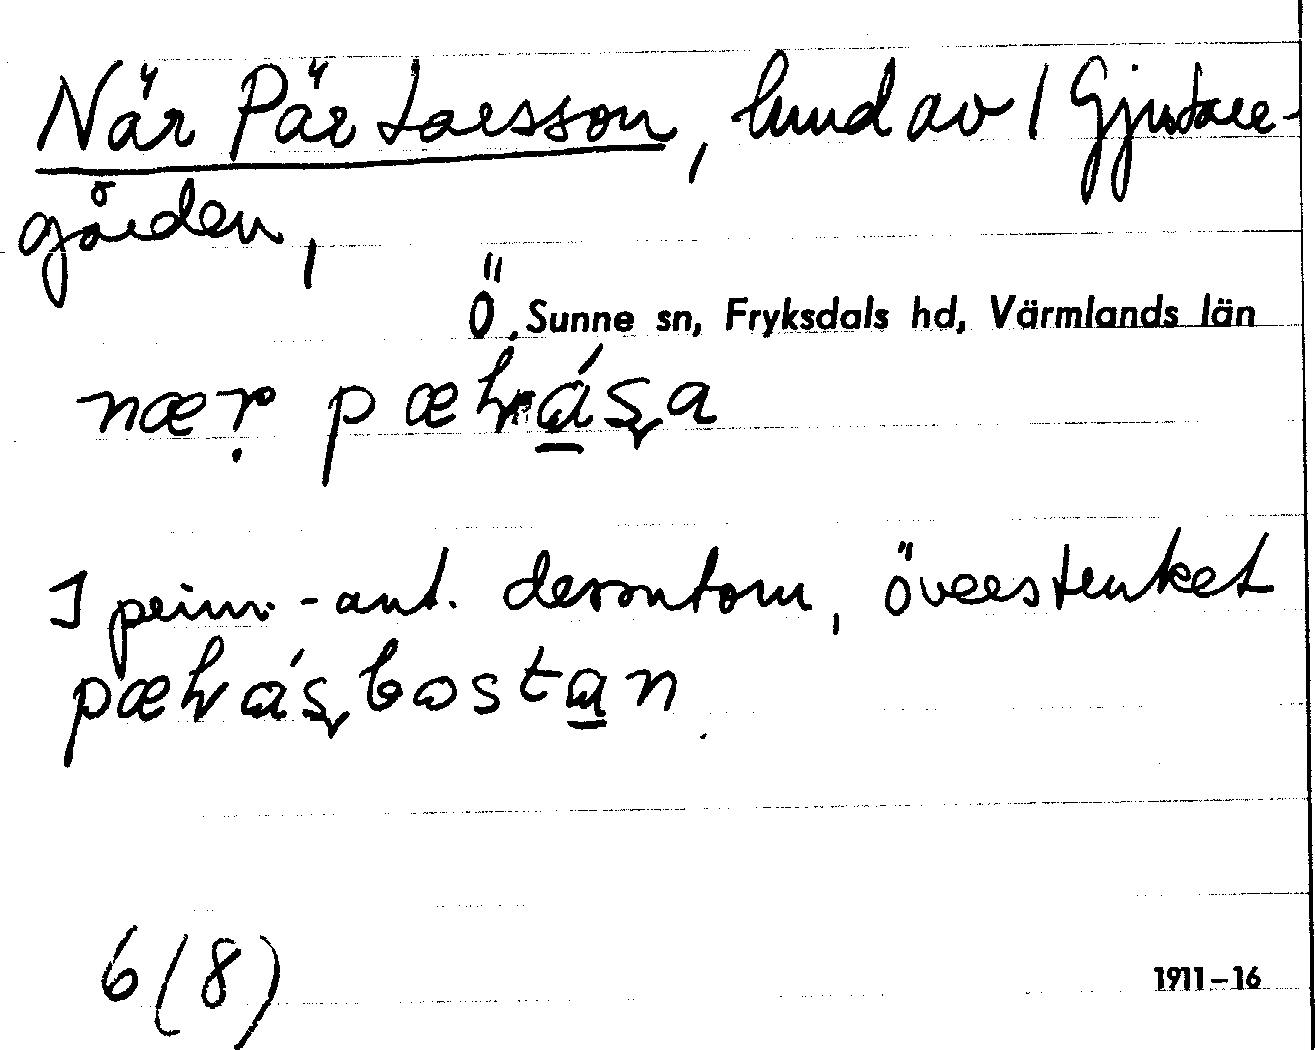 När Pär Larsson, hmd av 1 Gjutare-
gården,
Ö. Sunne sn, Fryksdals hd, Värmlands län
næṛ pælrása
I prim.-ant. dessutom, överstruket
pælrásbostan
6 (8)
1911–16